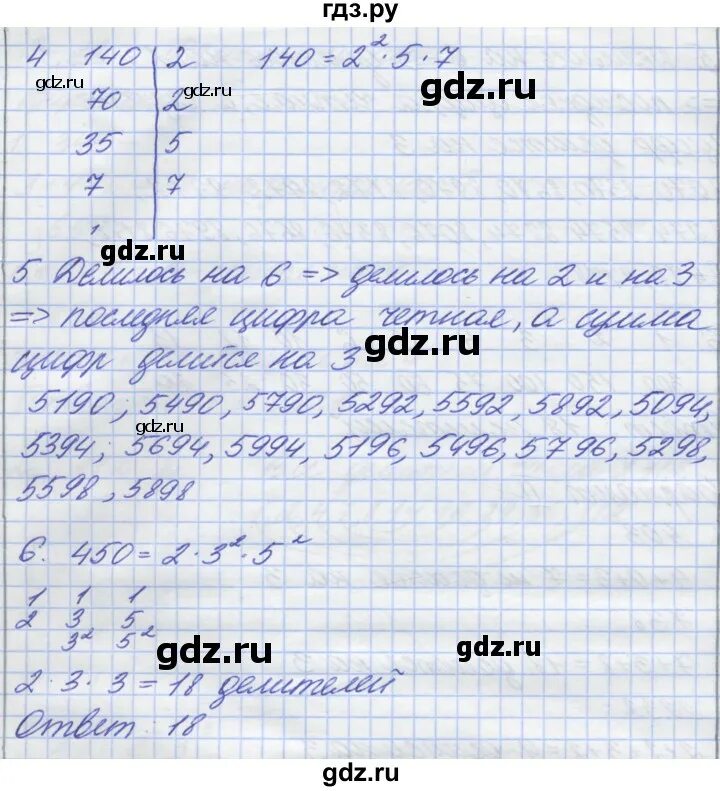 гдз.ру
4 140 2 140 = 2² · 5 · 7
gdz.ru gdz.ru gdz.ru
70 2
35 5
7 7
1
gdz.ru gdz.ru
5 Делилось на 6 => делилось на 2 и на 3
=> последняя цифра четная, а сумма
цифр делится на 3
gdz.ru
5190; 5490, 5790, 5292, 5592, 5892, 5094,
gdz.ru
5394; 5694, 5994, 5196, 5496, 5796, 5298,
5598, 5898
6. 450 = 2 · 3² · 5²
1 1 1
2 3 5
3² 5²
gdz.ru gdz.ru
2 · 3 · 3 = 18 делителей
Ответ: 18
gdz.ru